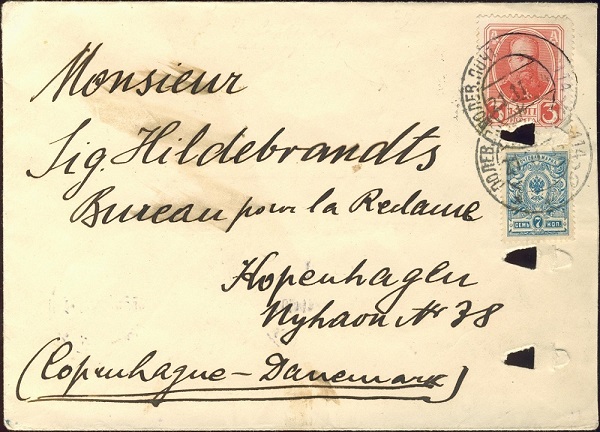 Monsieur
Sig. Hildebrandts
Bureau pour la Reclame
Kopenhagen
Nyhavn Nr 38
(Copenhague - Danemark)
3
7
СЕМЬ КОП.